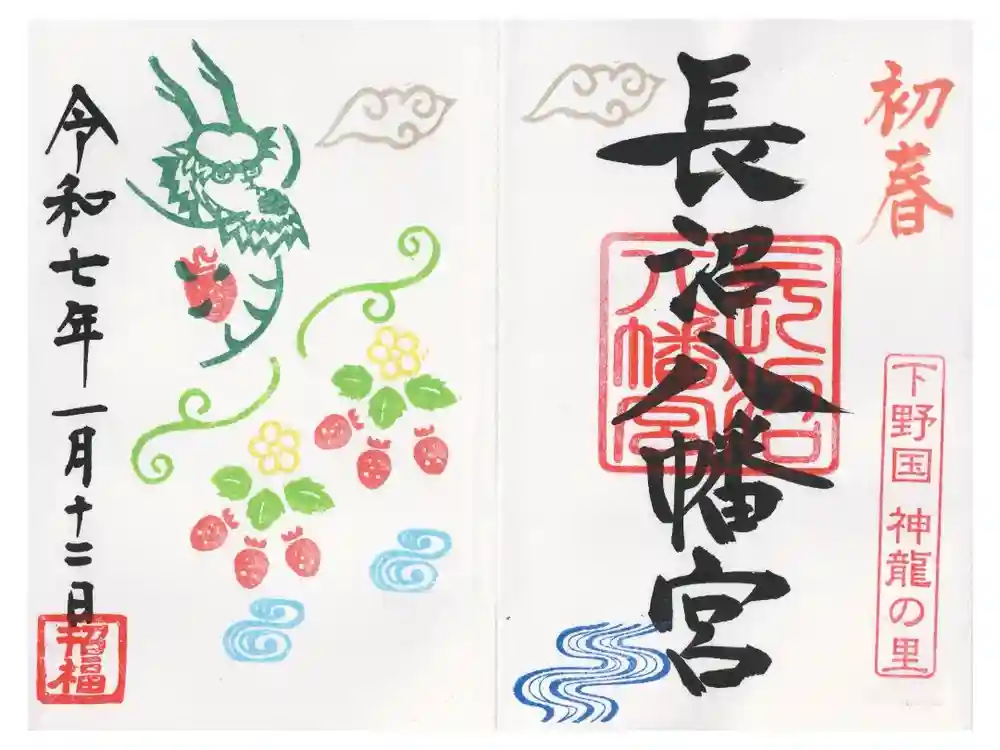 初春
下野国 神龍の里
長沼八幡宮
長沼八幡宮
令和七年一月十二日
招福